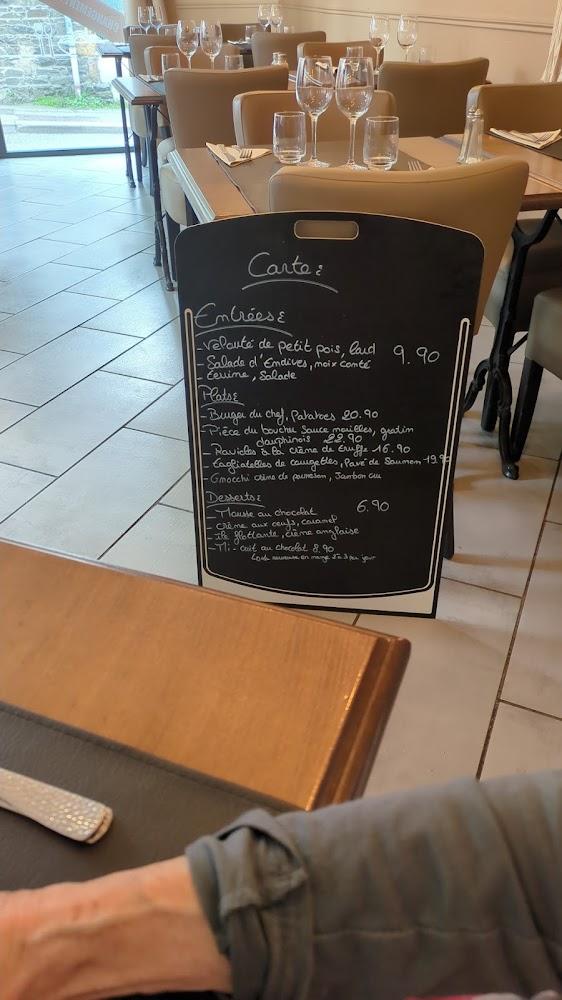 DIRANGEMENT
Carte :
Entrées :
- Velouté de petit pois, lard 9.90
- Salade d'Endives, noix conté
- terrine, Salade
Plats :
- Burger du chef, Patatoes 20.90
- Pièce du boucher Sauce morilles, gratin
dauphinois 22.90
- Ravioles à la crème de truffe 16.90
- tagliatelles de courgettes, Pavé de Saumon 19.90
- Gnocchi crème de parmesan, Jambon cru
Desserts :
- Mousse au chocolat 6.90
- Crème aux oeufs, caramel
- île flottante, crème anglaise
- Mi-cuit au chocolat 8.90